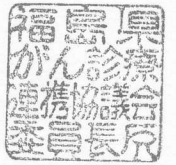 福島県
がん診療
連携協議会
委員長印